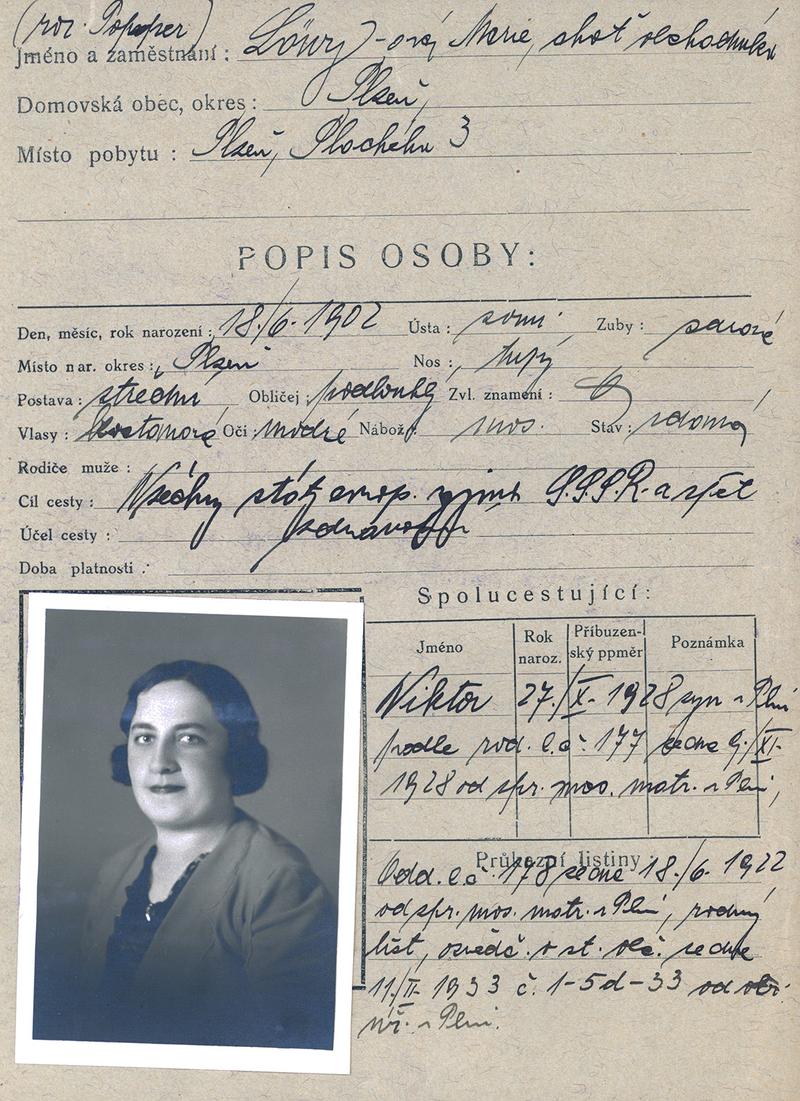 (roz. Popper)
Jméno a zaměstnání: Löwy-ová Marie, choť obchodníka
Domovská obec, okres: Plzeň,
Místo pobytu: Plzeň, Plocheho 3
POPIS OSOBY:
Den, měsíc, rok narození: 18./6. 1902 Ústa: Zuby:
Místo nar. okres: Plzeň Nos: tupý
Postava: střední Obličej: podlouhlý Zvl. znamení:
Vlasy: Oči: modré Nábož: mos. Stav: vdaná
Rodiče muže:
Cíl cesty: Všechny státy evrop. vyjma S.S.S.R. a zpět
Účel cesty:
Doba platnosti:
Spolucestující:
Jméno Rok naroz. Příbuzenský ppměr Poznámka
Viktor 27./X. 1928 syn v Plzni
podle rod. l. č. 177 ze dne 9./XI.
1928 od spr. mos. matr. v Plzni,
Průkazní listiny
Odd. l. č. 178 ze dne 18./6. 1922
od spr. mos. matr. v Plzni, rodný
list, osvědč. o st. obč. ze dne
11/II- 1933 č. 1-5d-33 od
v Plzni.